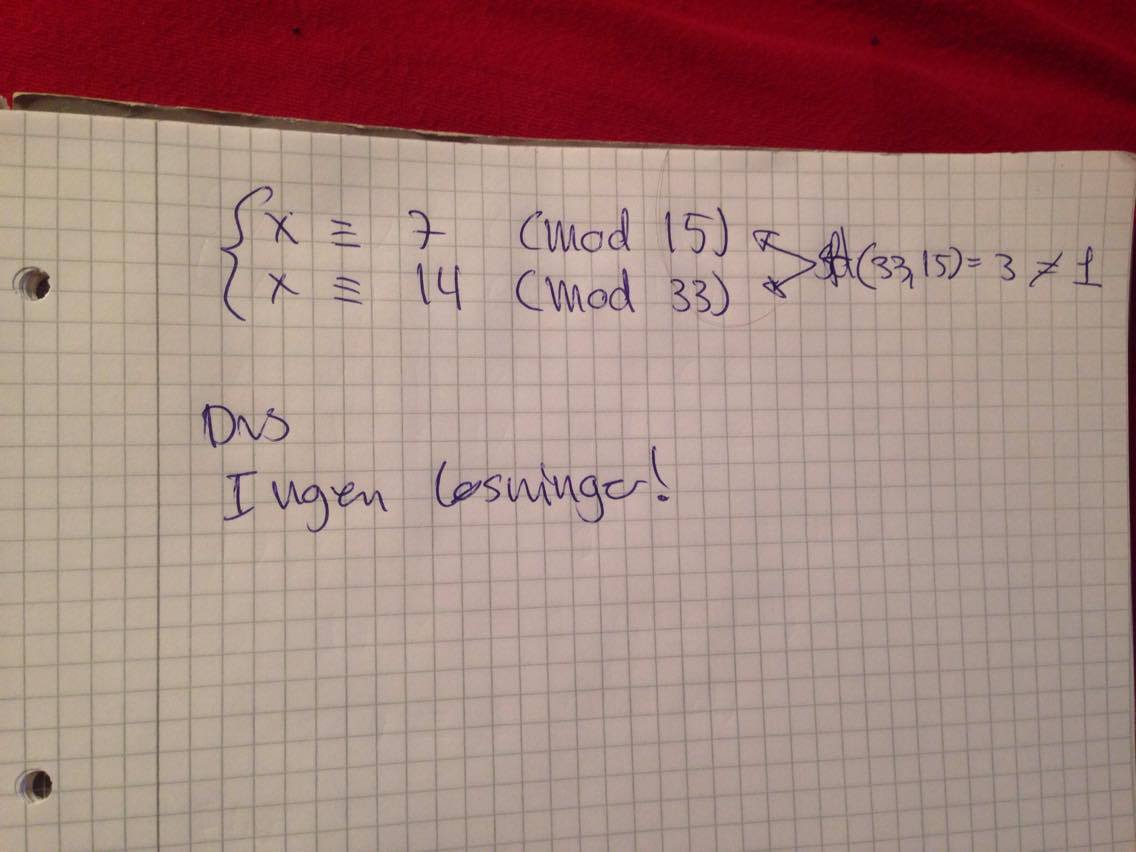 { x ≡ 7 (mod 15)
x ≡ 14 (mod 33)
(33,15) = 3 ≠ 1
Dvs
Ingen løsninger!